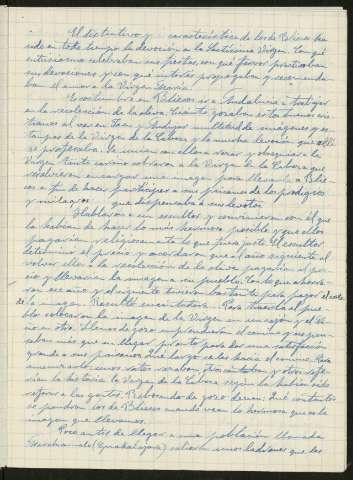 El distintivo y característica de los de Blieses ha
sido en todo tiempo la devoción a la Santísima Virgen. Con qué
entusiasmo celebraban sus fiestas, con qué fervor practicaban
sus devociones y con qué interés propagaban y recomenda
ban el amor a la Virgen María.
Es costumbre en Blieses ir a Andalucía a trabajar
en la recolección de la oliva. Cuánto gozaban estos buenos cris
tianos al ver en Jaén y Andújar multitud de imágenes y es
tampas de la Virgen de la Cabeza y la mucha devoción que allí
se profesaba. Se unían en ellos a rezar y obsequiar a la
Virgen. Tanto cariño cobraron a la Virgen de la Cabeza que
resolvieron encargar una imagen para llevarla a Blie
ses a fin de hacer partícipes a sus paisanos de los prodigios
y milagros que dispensaba a sus devotos.
Hablaron a un escultor y convinieron con él que
la habían de hacer lo más hermosa posible y que ellos
pagarían religiosamente lo que fuera justo. El escultor
determinó el precio y acordaron que al año siguiente al
volver ellos a la recolección de la oliva pagarían el pre
cio y llevarían la imagen a su pueblo. Con lo que ahorra
ron ese año y el siguiente tuvieron bastante para pagar el coste
de la imagen. Resultó encantadora. Para traerla al pue
blo colocaron la imagen de la Virgen en una caja y el Ni
ño en otra. Llenos de gozo emprendieron el camino y no pen
saban más que en llegar pronto para dar una satisfacción
grande a sus paisanos. Qué largo se les hacía el camino. Para
amenizarlo unos ratos rezaban, otros cantaban y otros refe
rían la historia de la Virgen de la Cabeza según la habían oído
referir a las gentes. Rebosando de gozo decían: Qué contentos
se pondrán los de Blieses cuando vean lo hermosa que es la
imagen que llevamos.
Poco antes de llegar a una población llamada
(Guadalajara) salieron unos ladrones que les